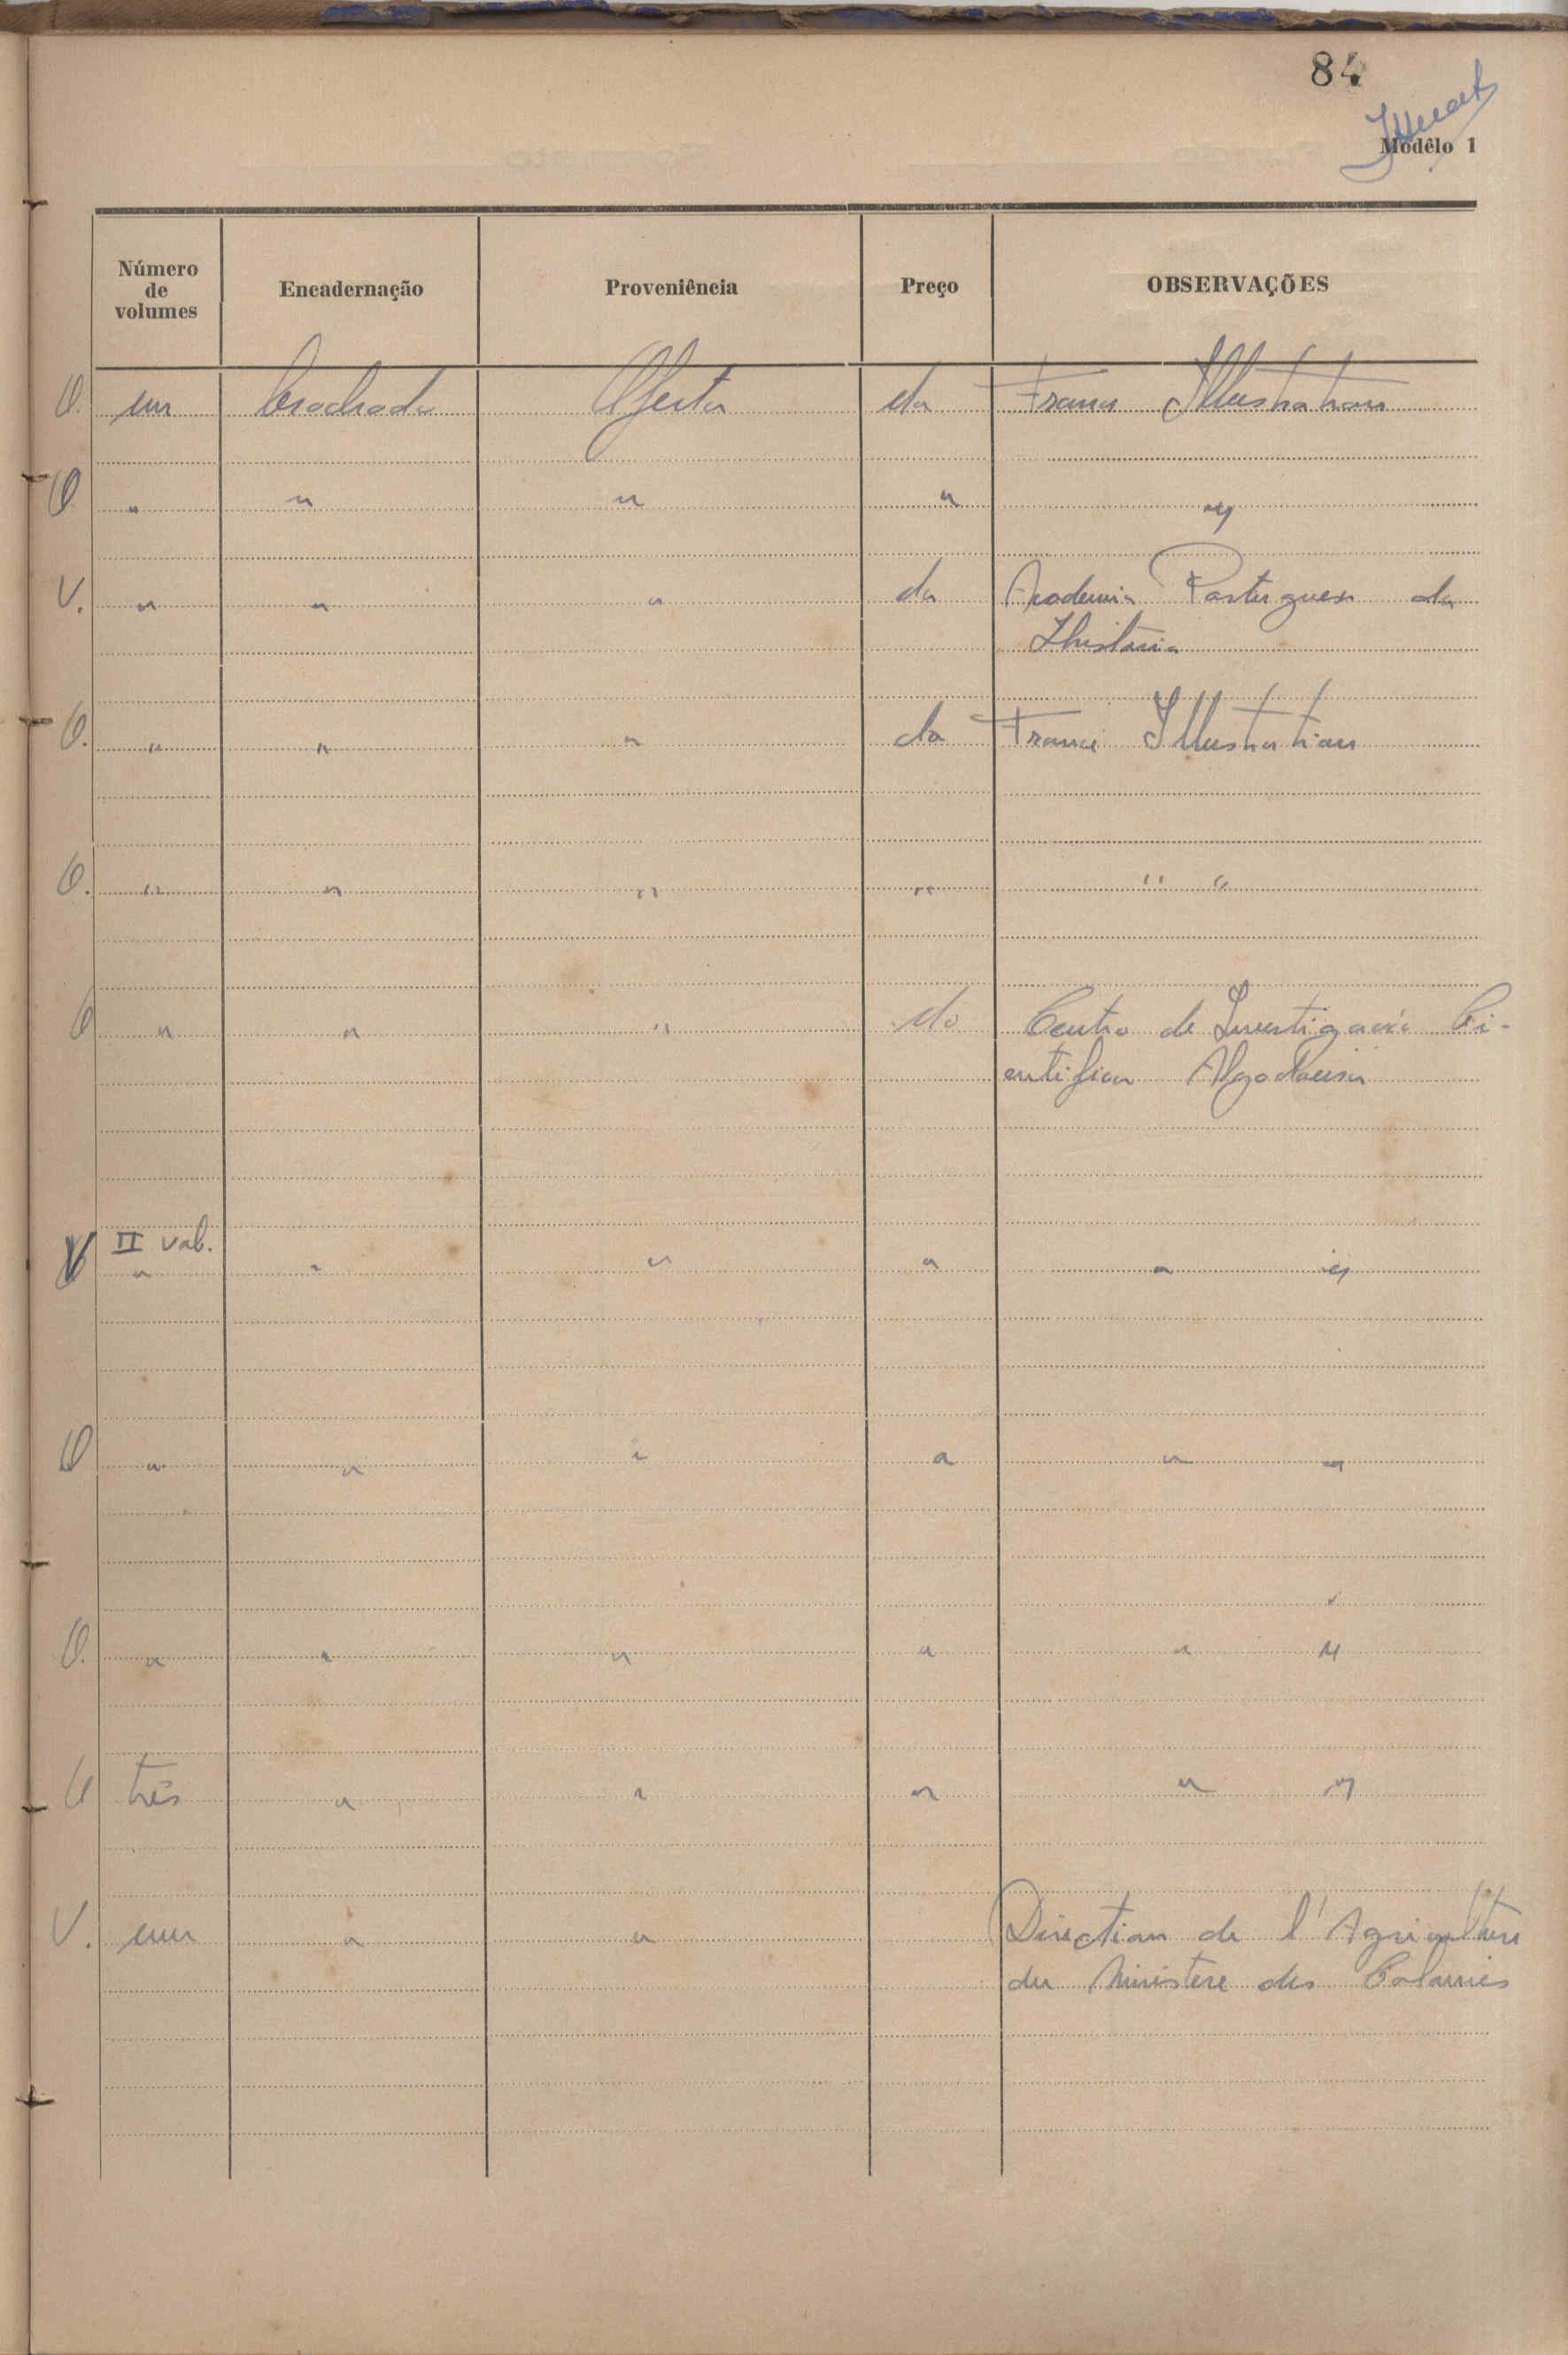 84
Modêlo 1
Número de volumes Encadernação Proveniência Preço OBSERVAÇÕES
O. um brochado Oferta da France Illustration
O. " " " " "
V. " " " da Academia Portuguesa da
Historia
O. " " " da France Illustration
O. " " " " " "
O " " " do Centro de Investigação Ci-
entifica Algodoeira
V II vol.
" " " " " "
O " " " " " "
O. " " " " " "
O três " " " " "
V. um " " Direction de l'Agriculture
du Ministere des Colonies